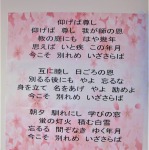 仰げば尊し
仰げば 尊し 我が師の恩
教の庭にも はや幾年
思えば いと疾 この年月
今こそ 別れめ いざさらば
互に睦し 日ごろの恩
別るる後にも やよ 忘るな
身を立て 名をあげ やよ 励めよ
今こそ 別れめ いざさらば
朝夕 馴れにし 学びの窓
蛍の灯火 積む白雪
忘るる 間ぞなき ゆく年月
今こそ 別れめ いざさらば